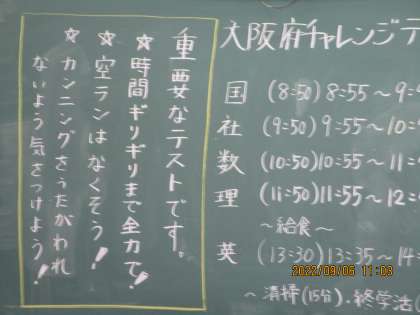 重要なテストです。
☆時間ギリギリまで全力で!
☆空ランはなくそう!
☆カンニングをうたがわれ
ないよう気をつけよう!
大阪府チャレンジテ
国 (8:50) 8:55~9:
社 (9:50) 9:55~10:
数 (10:50) 10:55~11:
理 (11:50) 11:55~12:
~給食~
英 (13:30) 13:35~14:
~清掃(15分)、終学活(
2022/09/06 11:03